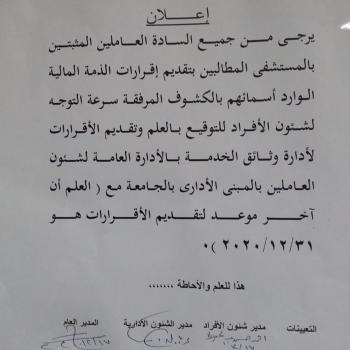 إعلان
يرجى من جميع السادة العاملين المثبتين
بالمستشفى المطالبين بتقديم إقرارات الذمة المالية
الوارد أسمائهم بالكشوف المرفقة سرعة التوجه
لشئون الأفراد للتوقيع بالعلم وتقديم الأقرارات
لأدارة وثائق الخدمة بالأدارة العامة لشئون
العاملين بالمبنى الأدارى بالجامعة مع ( العلم أن
آخر موعد لتقديم الأقرارات هو
٢٠٢٠/١٢/٣١ )٠
هذا للعلم والأحاطة ,,,,,,,
التعيينات مدير شئون الأفراد مدير الشئون الأدارية المدير العام